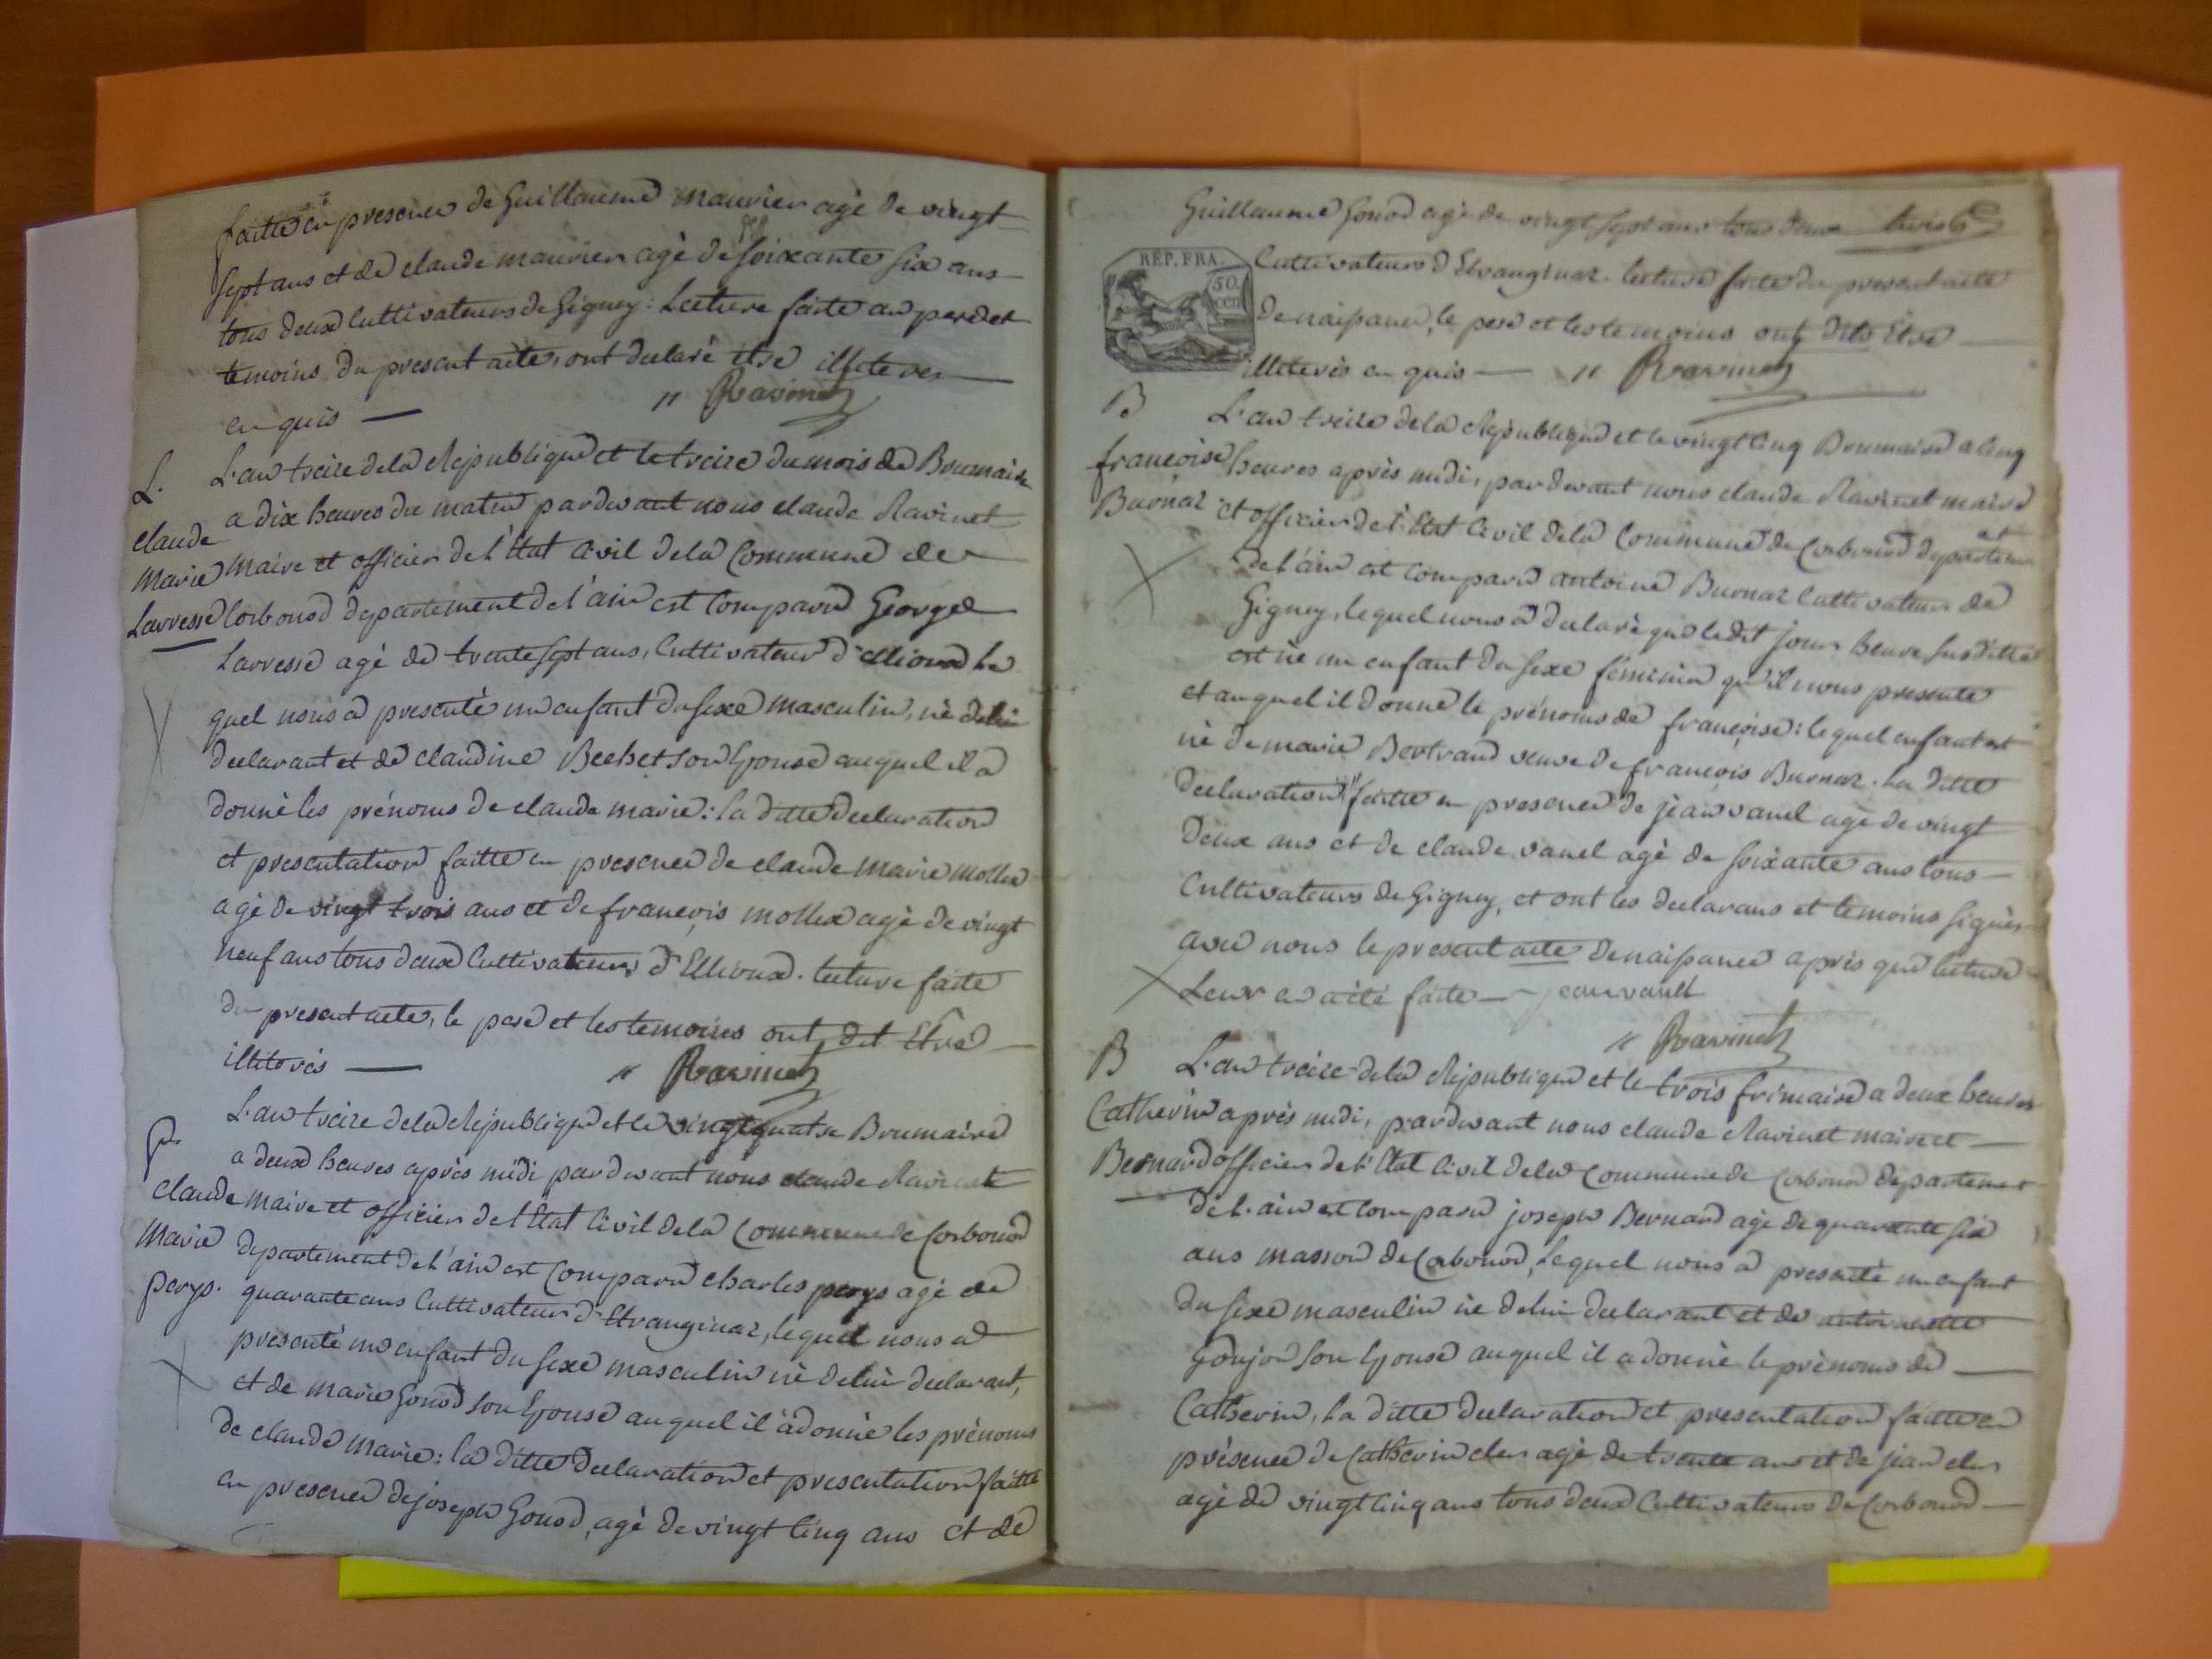 faitte en presence de Guillaume maurier agè de vingt
sept ans et de claude maurier agè de soixante six ans
tous deux Cultivateurs de Gigney : Lecture faite au perdet
temoins du present acte, ont declarè être illiteres
en quis — " Ravinet
L. L'an treize de la République et le treize du mois de Brumaire
a dix heures du matin pardevant nous claude Ravinet
claude
Marie Maire et officier de l'état Civil de la Commune de
Larresse Corbonod departement de l'ain est Comparu George
Larresse agè de trente sept ans, Cultivateur d' le
quel nous a presentè un enfant du sexe masculin, nè de lui
declarant et de claudine Bechet son Epouse auquel il a
donnè les prénoms de claude marie : la ditte declaration
et presentation faitte en presence de claude marie mollex
agè de vingt trois ans et de francois mollex agè de vingt
neuf ans tous deux Cultivateurs d' . lecture faite
du present acte, le pere et les temoins ont dit Etre
illiterés — " Ravinet
P. L'an treize de la République et le vingt quatre Brumaire
a deux heures après midi pardevant nous claude Ravinet
claude maire et officier de l'Etat Civil de la Commune de Corbonod
Marie departement de l'ain est Comparu charles perys agè de
perys. quarante ans Cultivateur d'Etranginaz, lequel nous a
presentè un enfant du sexe masculin nè de lui declarant,
et de marie Gonod son Epouse auquel il a donnè les prénoms
de claude marie : la ditte declaration et presentation faitte
en presence de joseph Gonod, agè de vingt cinq ans et de
Guillaume Gonod agè de vingt sept ans tous deux
RÉP. FRA.
50.
cen
Cultivateurs d'Etranginaz. lecture faite du present acte
de naissance, le pere et les temoins ont dits Etre
illiterès en quis — " Ravinet
B L'an treize de la République et le vingt cinq Brumaire a cinq
francoise heures après midi, pardevant nous claude Ravinet maire
Burnaz et officier de l'Etat Civil de la Commune de Corbonod departem et
de l'ain est Comparu antoine Burnaz Cultivateur de
Gigney, lequel nous a declarè que ledit jour heure susditte
est nè un enfant du sexe féminin qu'il nous presente
et auquel il donne le prénoms de françoise : lequel enfant est
nè de marie Bertrand veuve de françois Burnaz. La ditte
declaration faitte en presence de jean vanel agè de vingt
deux ans et de claude vanel agè de soixante ans tous
Cultivateurs de Gigney, et ont les declarans et temoins signès
avec nous le present acte de naissance après que lecture
Leur a été faite — jean vanel
" Ravinet
B L'an treize de la République et le trois frimaire a deux heures
Catherin après midi, pardevant nous claude Ravinet maire et
Bernard officier de l'Etat Civil de la Commune de Corbonod departement
de l'ain est Comparu joseph Bernard agè de quarante six
ans masson de Corbonod, lequel nous a presentè un enfant
du sexe masculin nè de lui declarant et de antoinette
Goujon son Epouse auquel il a donnè le prènoms de
Catherin, La ditte declaration et presentation faitte en
présence de Catherin cler agè de trente ans et de jean cler
agè de vingt cinq ans tous deux Cultivateurs de Corbonod